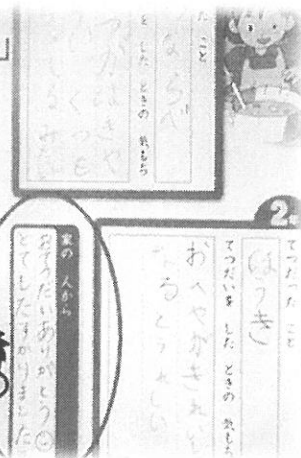 た こと
ならべ
を した ときの 気もち
2
てつだった こと
はうき
てつだいを した ときの 気もち
おへやがきれい
なるとうれしい
家の 人から
おてつだいありがとう
とてもたすかりました